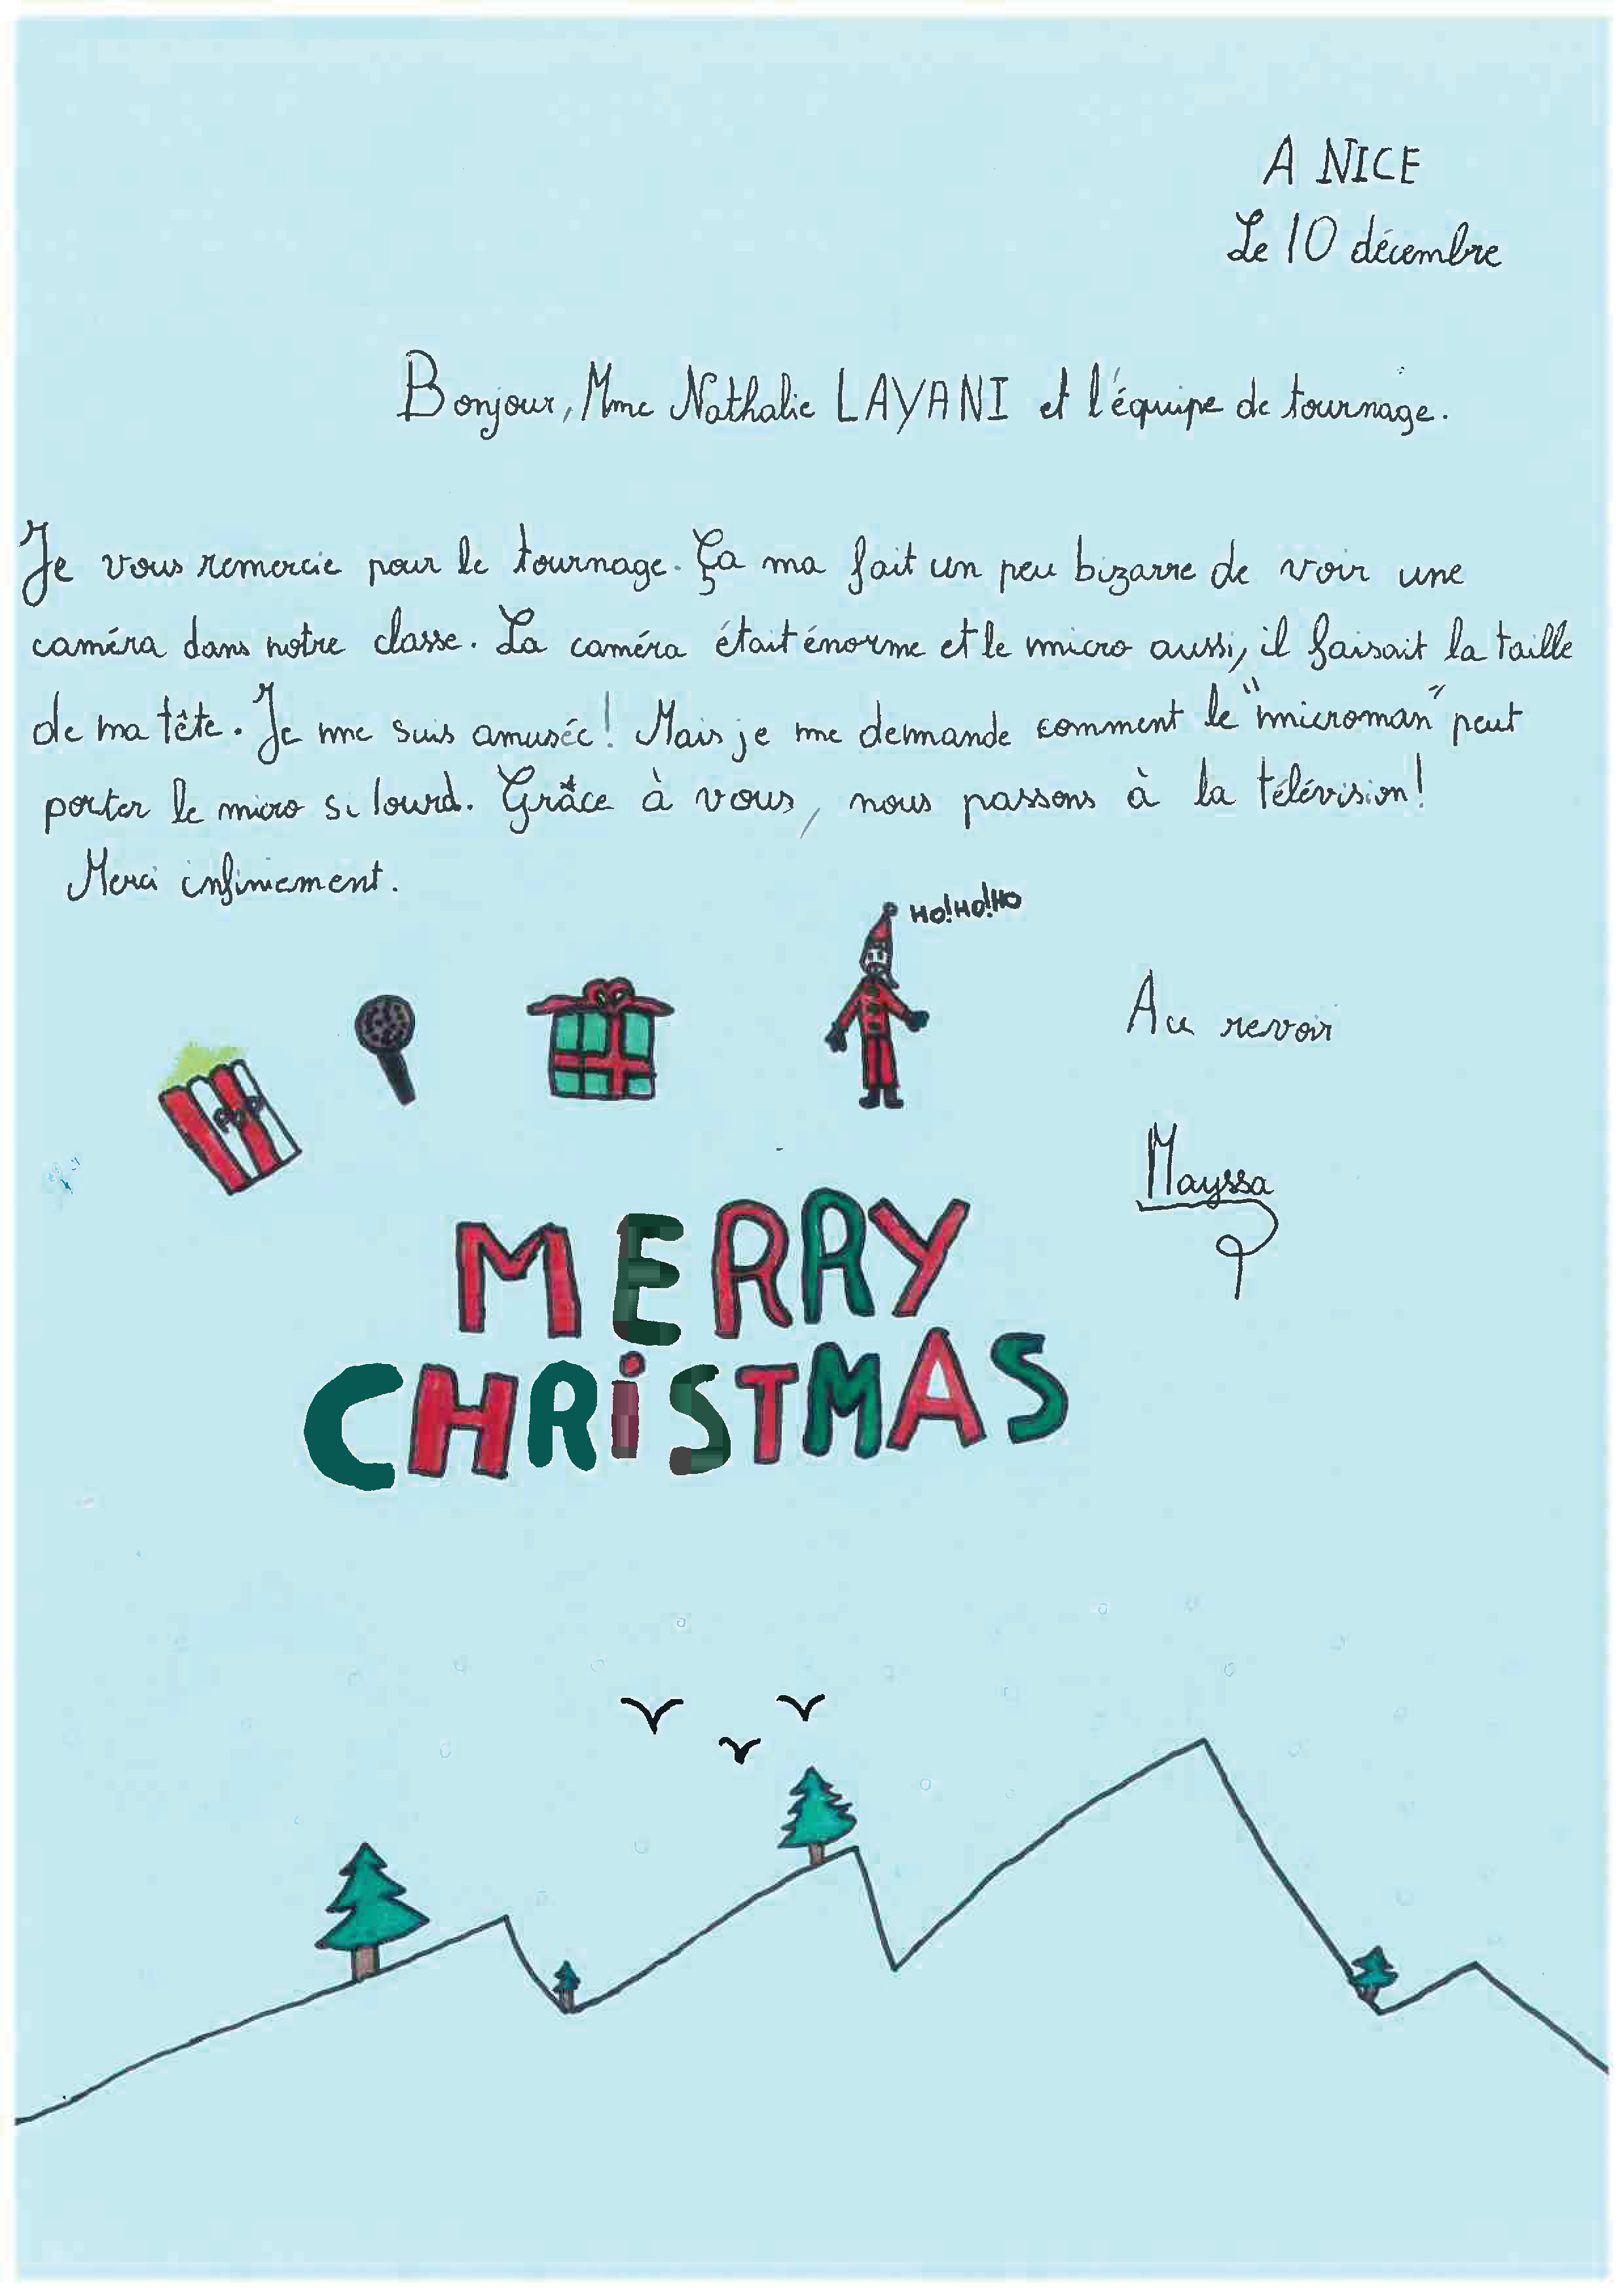 A NICE
Le 10 décembre
Bonjour, Mme Nathalie LAYANI et l'équipe de tournage.
Je vous remercie pour le tournage. Ça ma fait un peu bizarre de voir une
caméra dans notre classe. La caméra était énorme et le micro aussi, il faisait la taille
de ma tête. Je me suis amusée! Mais je me demande comment le "microman" peut
porter le micro si lourd. Grâce à vous, nous passons à la télévision!
Merci infiniement.
HO!HO!HO
Au revoir
POP
Mayssa
MERRY
CHRiSTMAS